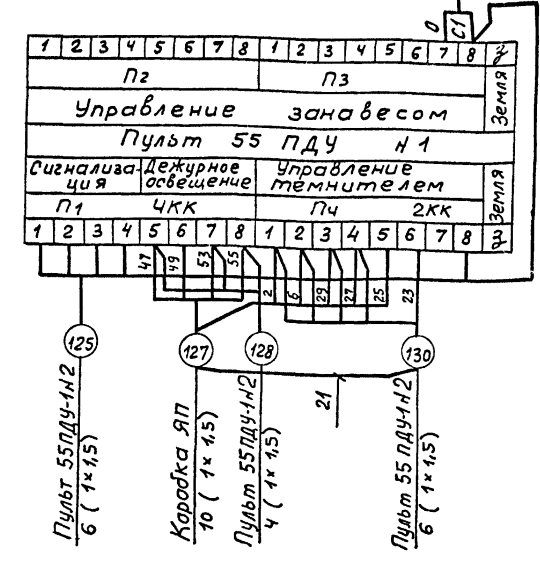 0 С1
1 2 3 4 5 6 7 8 1 2 3 4 5 6 7 8 З
П2 П3 Земля
Управление занавесом
Пульт 55 ПДУ N1
Сигнализа-
ция
Дежурное
освещение
Управление
темнителем
Земля
П1 ЧКК П4 2КК
1 2 3 4 5 6 7 8 1 2 3 4 5 6 7 8 З
47 49 53 55 2 6 29 27 25 23
125 127 128 130
21
Пульт 55ПДУ-1N2
6 (1×1,5)
Коробка ЯП
10 (1×1,5)
Пульт 55ПДУ-1N2
4 (1×1,5)
Пульт 55 ПДУ-1N2
6 (1×1,5)